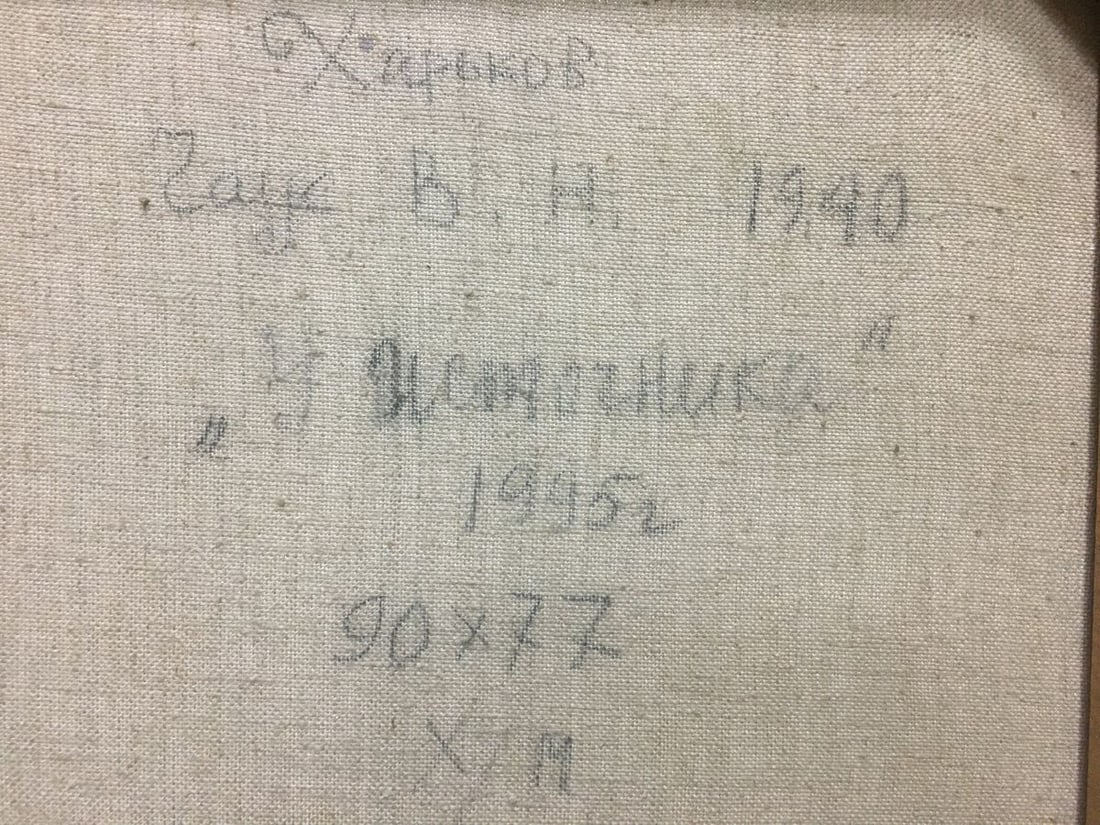 г Харьков
Чаус В. Н. 1940
"У Источника"
1995г
90х77
Х/М